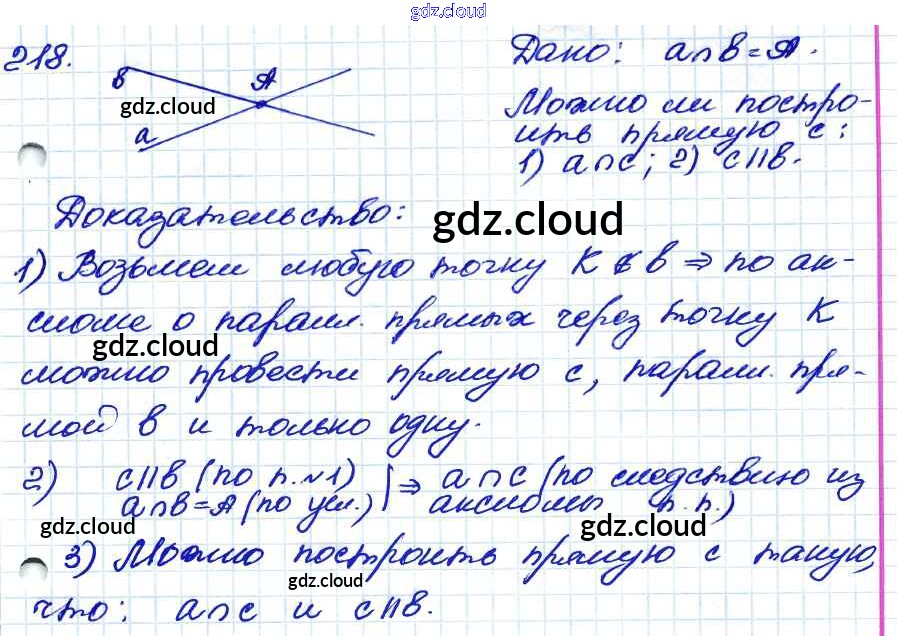 gdz.cloud
218.
в
A
gdz.cloud
a
Дано: a∩в=A.
Можно ли постро-
ить прямую c:
1) a∩c; 2) c||в.
Доказательство:
gdz.cloud
1) Возьмем любую точку K ∉ в ⇒ по ак-
сиоме о паралл. прямых через точку K
gdz.cloud
можно провести прямую c, паралл. пря-
мой в и только одну.
2) c||в (по п.№1) | ⇒ a∩c (по следствию из
a∩в=A (по усл.) | аксиомы п.п.)
gdz.cloud
gdz.cloud
3) Можно построить прямую c такую,
gdz.cloud
что: a∩c и c||в.